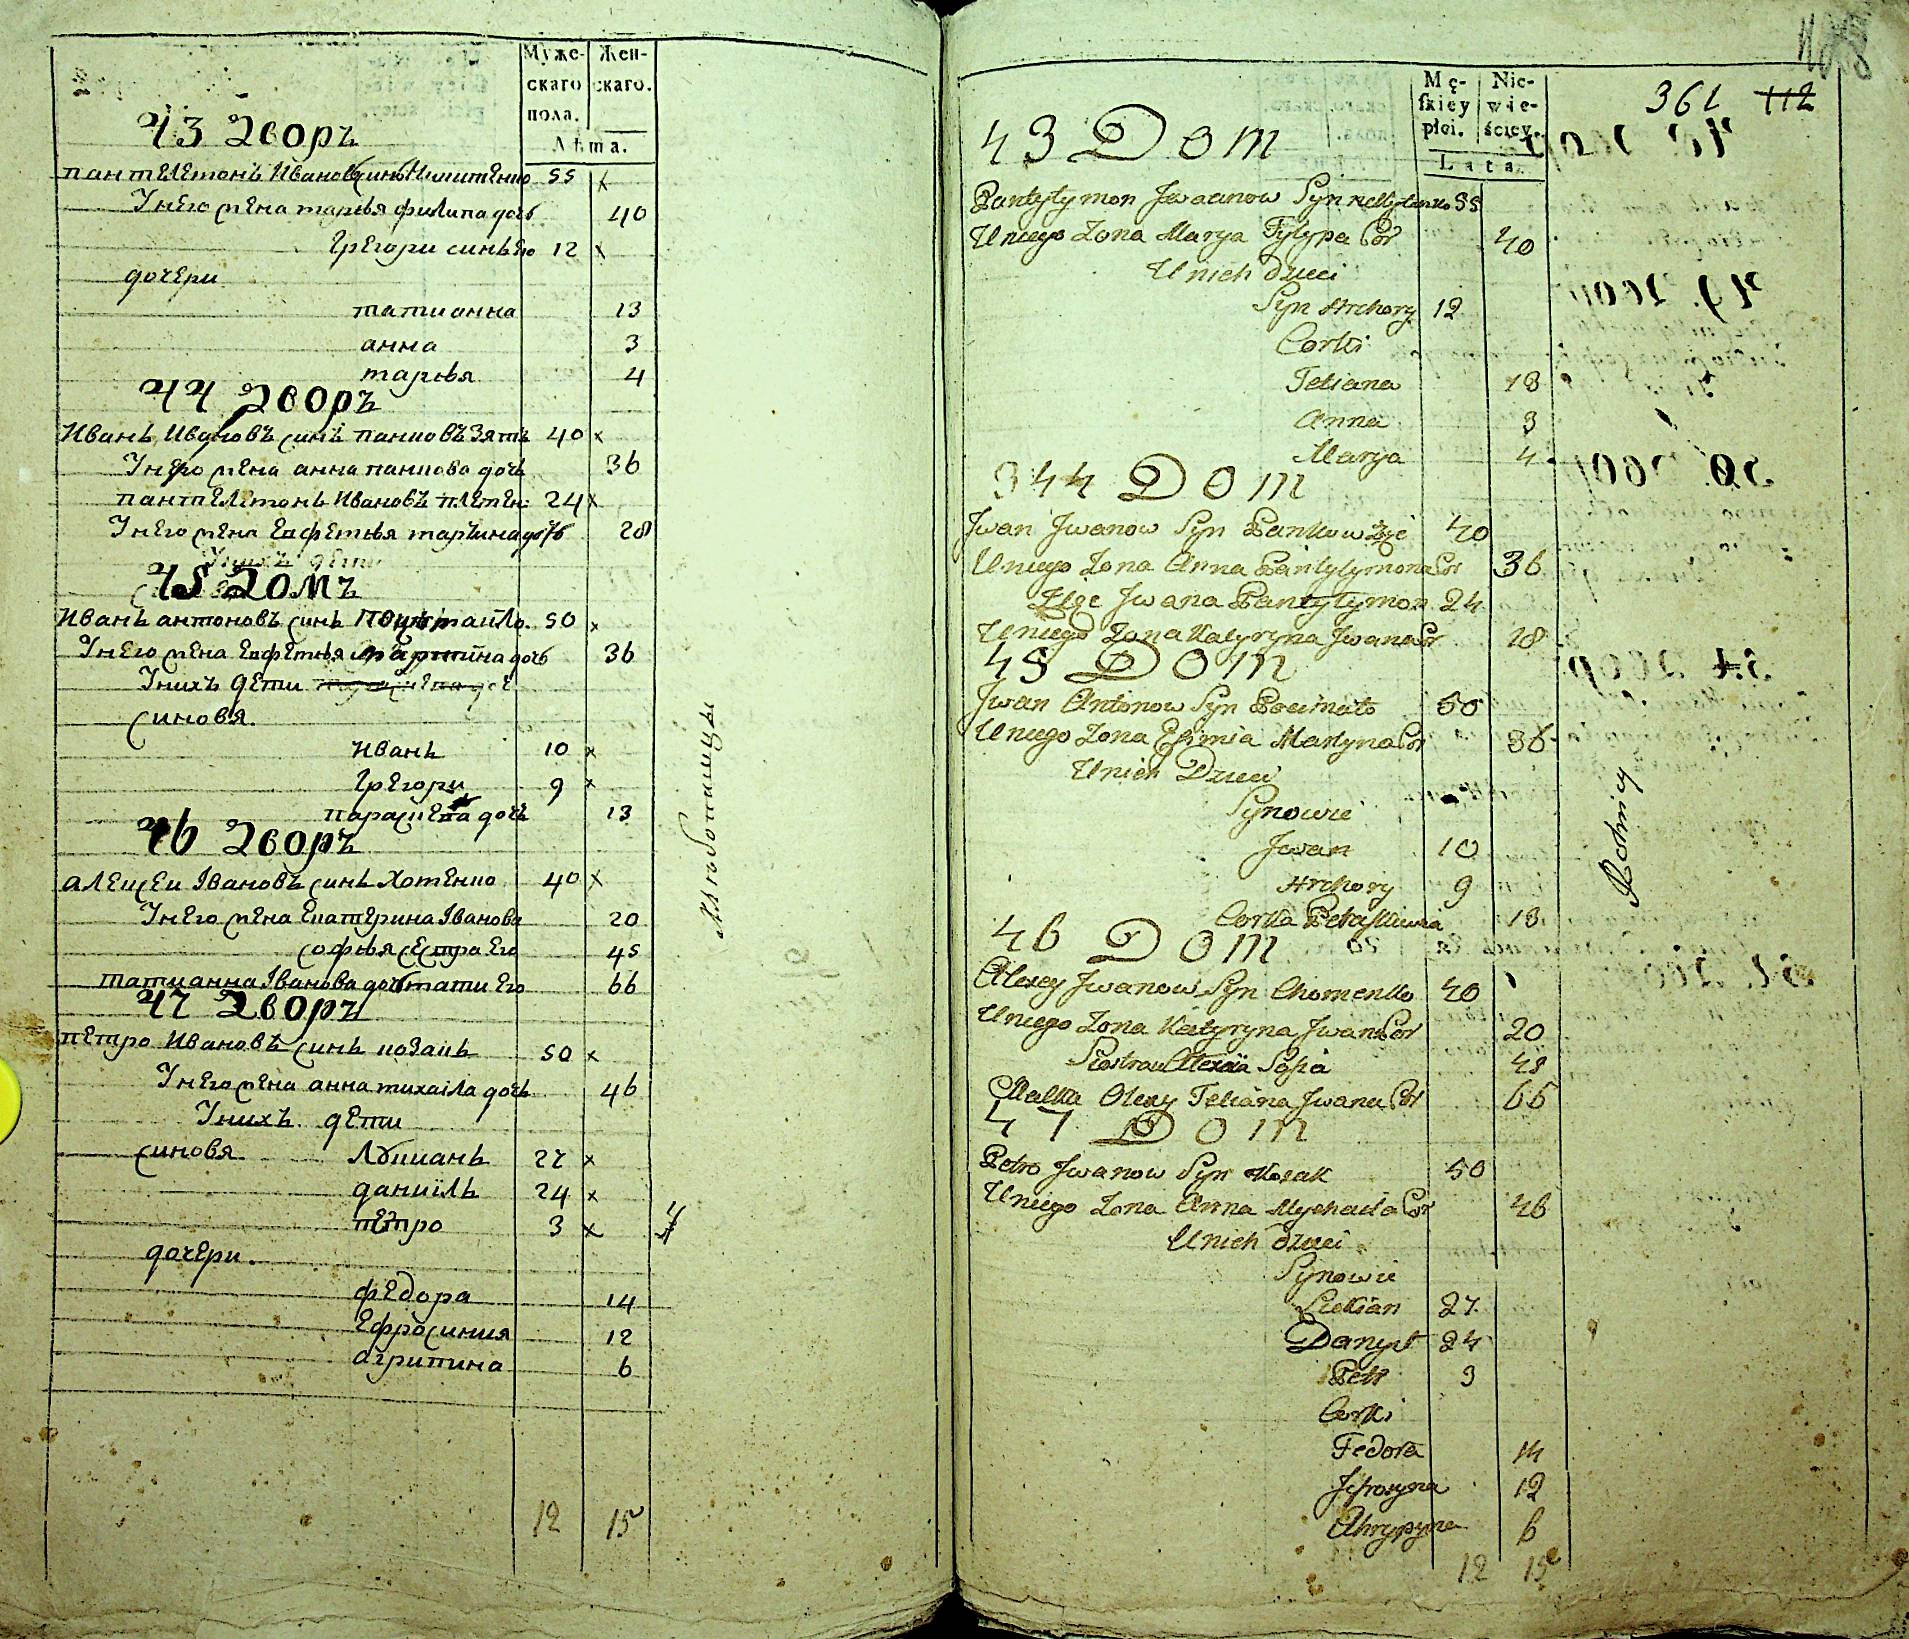 Муже- Жен-
скаго скаго.
пола.
Лѣта.
43 Дворъ
пантелемонъ Ивановъ синъ Никитенко 55 x
Унего жена марья филипа дочь 40
Грегори синь Его 12 x
дочери
татианна 13
анна 3
марья 4
44 Дворъ
Иванъ Ивановъ синъ панковъ зять 40 x
Унего жена анна панкова дочь 36
пантелемонь Ивановъ 24 x
Унего жена Евфемья мартина дочь 28
Унихъ дети
45 Домъ
Иванъ антоновъ синь 50 x
Унего жена Евфемья мартина дочь 36
Унихъ дети
синовя
Иванъ 10 x
Грегори 9 x
параскева дочь 13
46 Дворъ
алексеи Iвановъ синь Хоменко 40 x
Унего жена Екатерина Iванова 20
софья сестра Его 45
татианна Iванова дочь мати Его 66
47 Дворъ
петро Ивановъ синь козакь 50 x
Унего жена анна михаила дочь 46
Унихъ дети
синовя Лукианъ 27 x
данииль 24 x
петро 3 x
дочери.
федора 14
Ефросиния 12
агрипина 6
12 15
Хлеборобници
1088
361 112
Mę- Nie-
skiey wie-
płci. ściey.
Lata.
43 Dom
Pantylymon Jwanow Syn 55
Uniego Zona Marya Fylypa Cor 40
Unich dzieci
Syn Hrehory 12
Corki
Tetiana 13
Anna 3
Marya 4
344 Dom
Jwan Jwanow Syn Pankow Zięć 40
Uniego Zona Anna Pantylymona Cor 36
Zięć Jwana Pantylymon 24
Uniego Zona Katyryna Jwana Cor 18
45 Dom
Jwan Antonow Syn 50
Uniego Zona Efimia Martyna Cor 36
Unich Dzieci
Synowie
Jwan 10
Hrehory 9
Corka Paraskiewia 13
46 Dom
Olexey Jwanow Syn Chomenko 40
Uniego Zona Katyryna Jwana Cor 20
Siostra Olexia Sofia 45
Matka Olexy Tetiana Jwana Cor 66
47 Dom
Petro Jwanow Syn Kozak 50
Uniego Zona Anna Mychaila Cor 46
Unich dzieci
Synowie
Lukian 27
Danyło 24
Petr 3
Corki
Fedora 14
Jefrosyna 12
Ahrypyna 6
12 15
Rolnicy